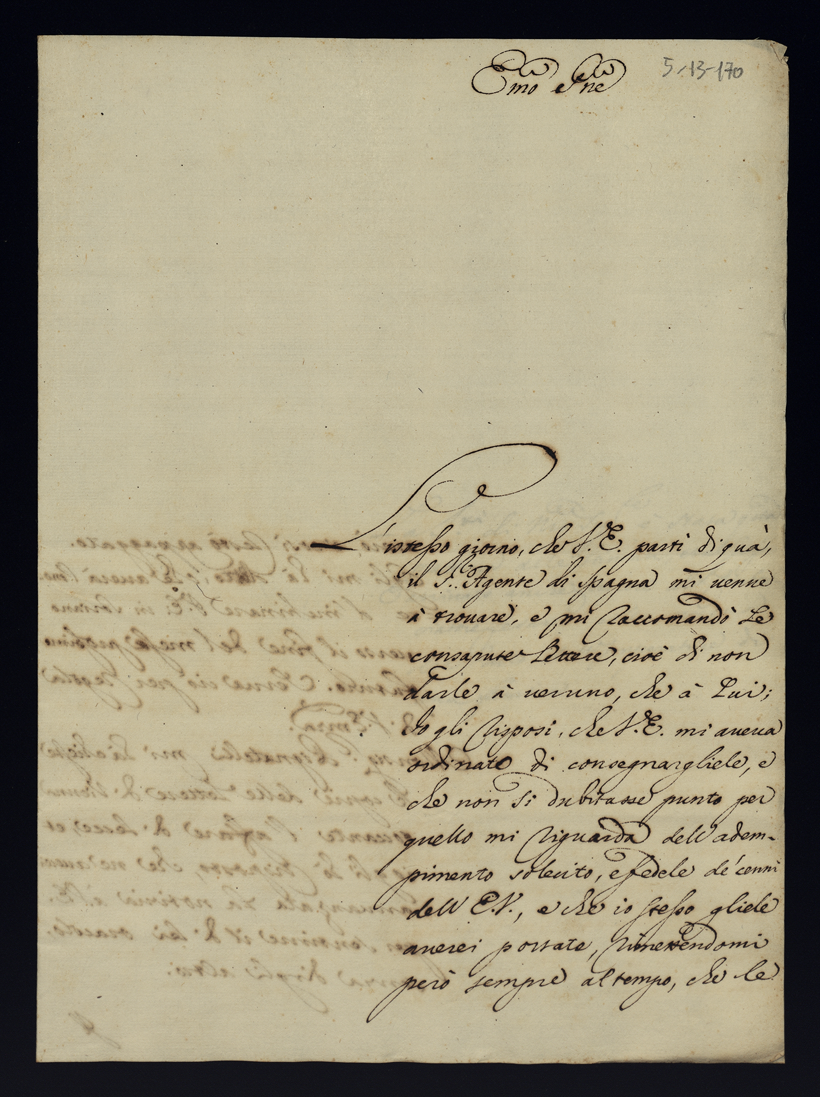 Emo e Pne
5-13-170
L'istesso giorno, che V.E. partì di quà,
il S.r Agente di Spagna mi venne
à trovare, e mi raccomandò le
consapute lettere, cioè di non
darle à veruno, che à Lui;
Io gli risposi, che V.E. mi aveva
ordinato di consegnargliele, e
che non si dubitasse punto per
quello mi riguarda dell'adem-
pimento solecito, e fedele de' cenni
dell'E.V., e che io stesso gliele
averei portate, rimettendomi
però sempre al tempo, che le